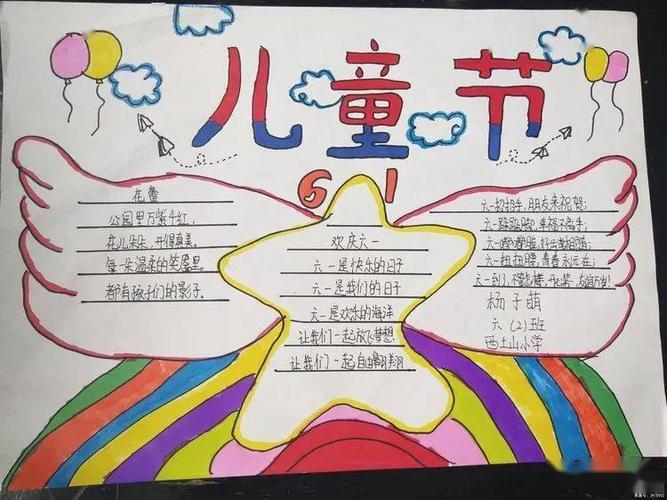 儿童节
6 1
花蕾
公园里万紫千红,
花儿朵朵,开得真美。
每一朵温柔的笑屋里
都有孩子们的影子。
欢庆六一
六一是快乐的日子
六一是我们的日子
六一是欢乐的海洋
让我们一起放飞梦想
让我们一起自由翱翔
六一招招手,朋友来祝贺;
六一跺跺脚,幸福不
六一
六一扭扭腰,青春永远在;
六一到了,
杨子萌
六(2)班
西土山小学